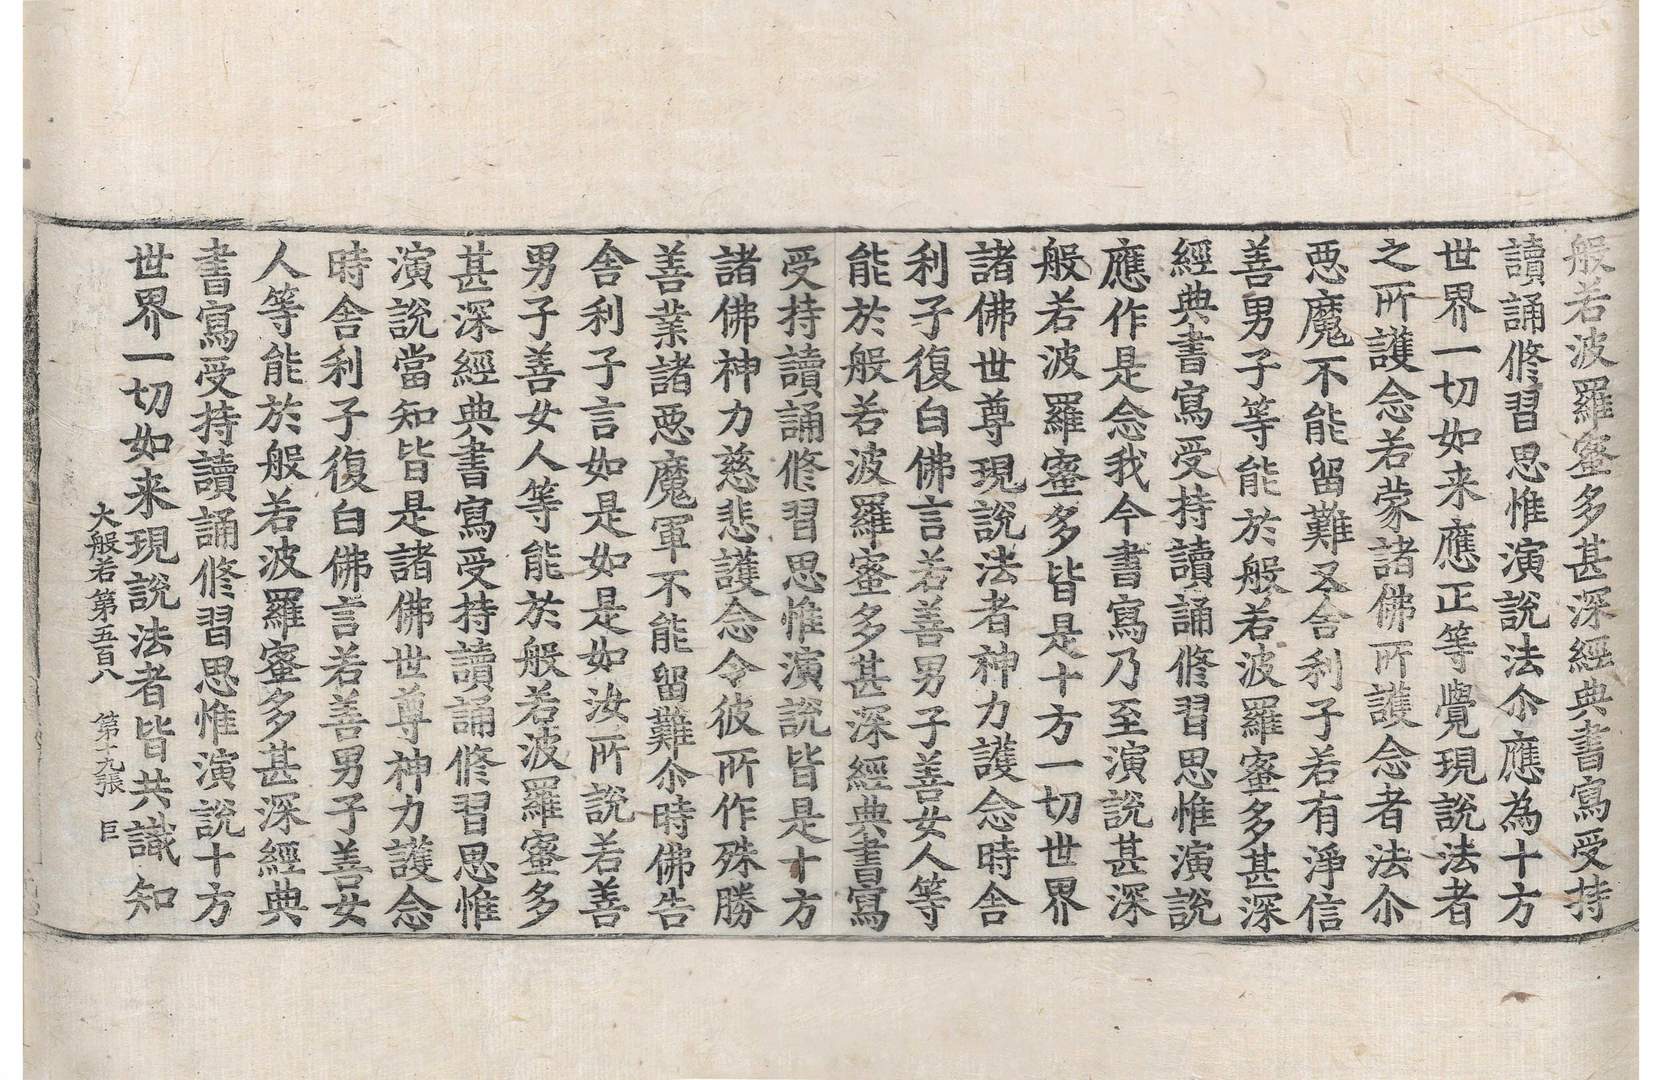 般若波羅蜜多甚深經典書寫受持
讀誦修習思惟演說法尒應為十方
世界一切如来應正等覺現說法者
之所護念若蒙諸佛所護念者法尒
惡魔不能留難又舍利子若有淨信
善男子等能於般若波羅蜜多甚深
經典書寫受持讀誦修習思惟演說
應作是念我今書寫乃至演說甚深
般若波羅蜜多皆是十方一切世界
諸佛世尊現說法者神力護念時舍
利子復白佛言若善男子善女人等
能於般若波羅蜜多甚深經典書寫
受持讀誦修習思惟演說皆是十方
諸佛神力慈悲護念令彼所作殊勝
善業諸惡魔軍不能留難尒時佛告
舍利子言如是如是如汝所說若善
男子善女人等能於般若波羅蜜多
甚深經典書寫受持讀誦修習思惟
演說當知皆是諸佛世尊神力護念
時舍利子復白佛言若善男子善女
人等能於般若波羅蜜多甚深經典
書寫受持讀誦修習思惟演說十方
世界一切如来現說法者皆共識知
大般若第五百八 第十九張 巨